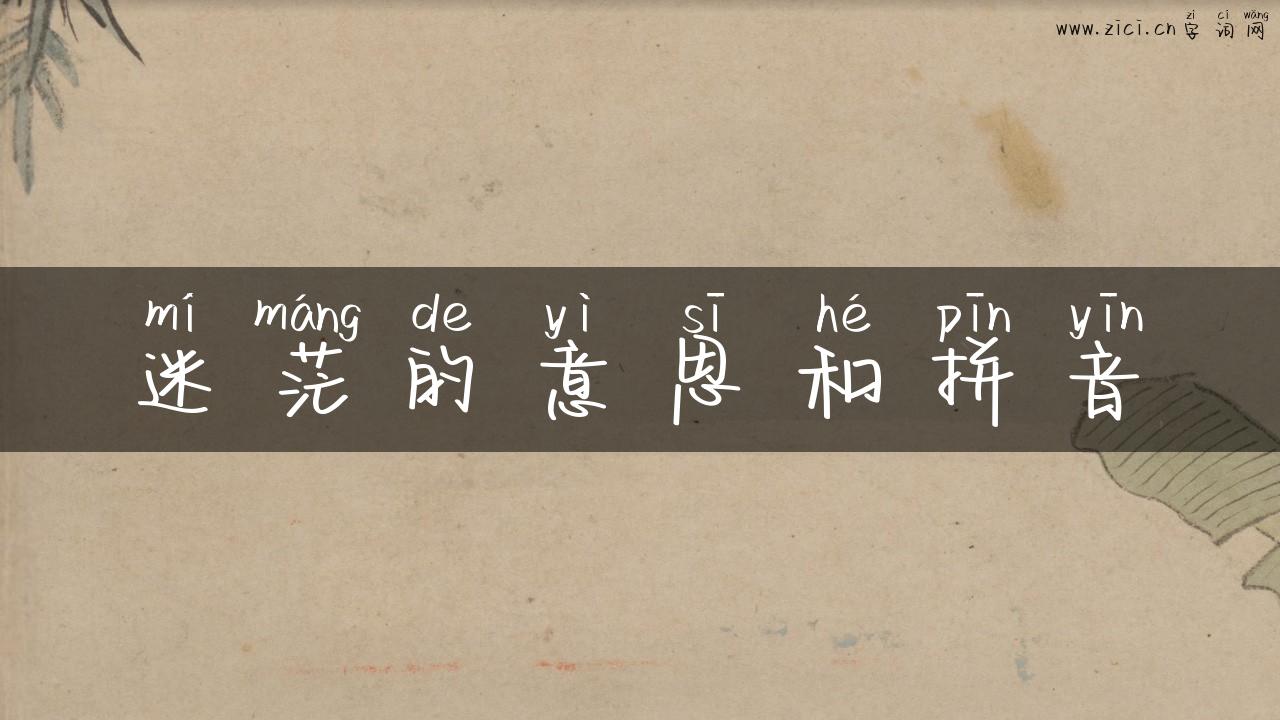 zì cí wǎng
www.zici.cn 字词网
mí máng de yì sī hé pīn yīn
迷茫的意思和拼音